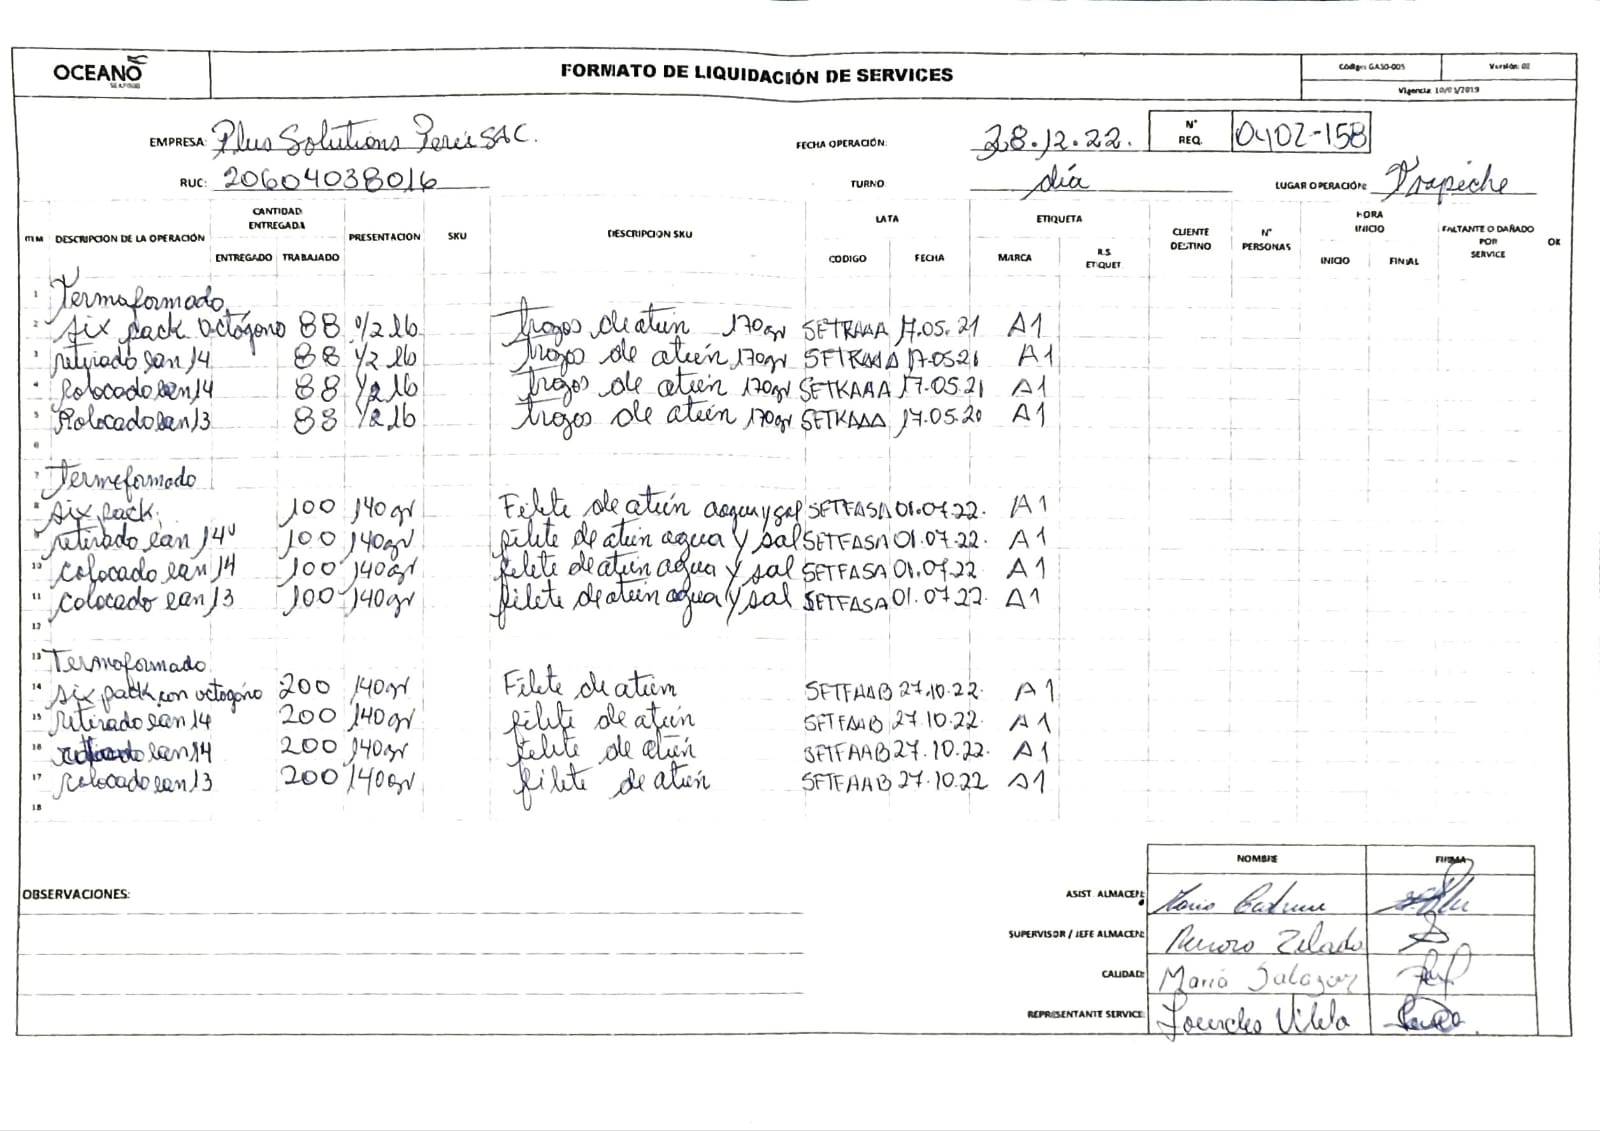 OCEANO
SEAFOOD
FORMATO DE LIQUIDACIÓN DE SERVICES
Código: GA30-005
Versión: 02
Vigencia: 10/01/2019
EMPRESA: Plus Solutions Perú SAC.
FECHA OPERACIÓN: 28.12.22.
N° REQ. 0402-158
RUC: 20604038016
TURNO día
LUGAR OPERACIÓN: Trapiche
ITEM DESCRIPCION DE LA OPERACIÓN CANTIDAD ENTREGADA PRESENTACION SKU DESCRIPCION SKU LATA ETIQUETA CLIENTE DESTINO N° PERSONAS HORA INICIO FALTANTE O DAÑADO POR SERVICE OK
ENTREGADO TRABAJADO CODIGO FECHA MARCA R.S. ETIQUET INICIO FINAL
1 Termoformado
2 six pack octógono 88 1/2 lb trozos de atún 170gr SETRAAA 17.05.21 A1
3 retirado ean 14 88 1/2 lb trozos de atún 170gr 17.05.21 A1
4 Colocado ean 14 88 1/2 lb trozos de atún 170gr SETKAAA 17.05.21 A1
5 Colocado ean 13 88 1/2 lb trozos de atún 170gr SETKAAA 17.05.20 A1
6
7 Termeformado
8 six pack 100 140gr Filete de atún agua y sal SETFASA 01.07.22. A1
9 retirado ean 14 100 140gr filete de atún agua y sal SETFASA 01.07.22. A1
10 colocado ean 14 100 140gr filete de atún agua y sal SETFASA 01.07.22 A1
11 colocado ean 13 100 140gr filete de atún agua y sal SETFASA 01.07.22. A1
12
13 Termoformado
14 six pack con octogóno 200 140gr Filete de atún SETFAAB 27.10.22. A1
15 retirado ean 14 200 140gr filete de atún SETFAAB 27.10.22. A1
16 ean 14 200 140gr filete de atún SETFAAB 27.10.22. A1
17 colocado ean 13 200 140gr filete de atún SETFAAB 27.10.22 A1
18
NOMBRE FIRMA
OBSERVACIONES:
ASIST. ALMACEN:
SUPERVISOR / JEFE ALMACEN: Zelado
CALIDAD: María Salazar
REPRESENTANTE SERVICE: Lourdes Vilela